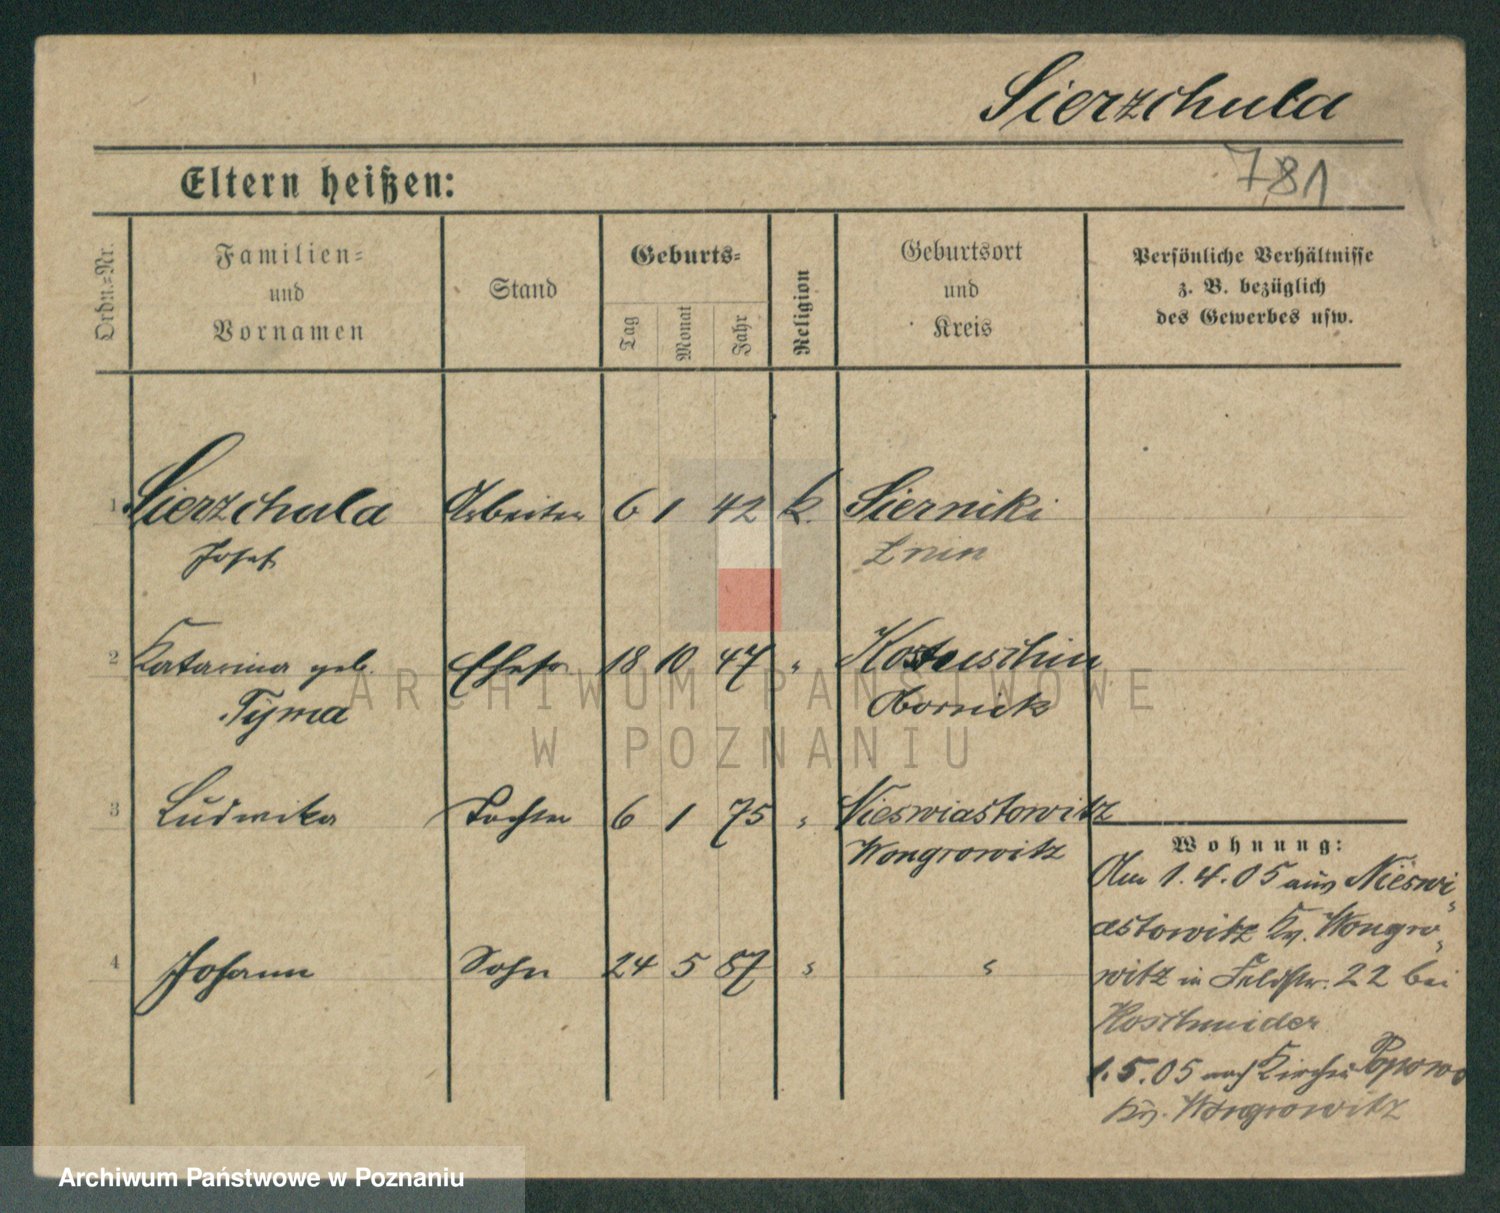 Sierzchula
781
Eltern heißen:
Ordn.=Nr.
Familien=
und
Vornamen
Stand
Geburts=
Tag
Monat
Jahr
Religion
Geburtsort
und
Kreis
Persönliche Verhältnisse
z. B. bezüglich
des Gewerbes usw.
1 Sierzchula Arbeiter 6 1 42 k. Sierniki
Josef Znin
2 Katarina geb. Ehefr. 18 10 47 " 
Tyma Obornik
3 Ludwika Tochter 6 1 75 " Nieswiastowitz
Wongrowitz
Wohnung:
Am 1.4.05 aus Nieswi-
astowitz Kr. Wongro-
witz in Feldstr. 22 bei
Koschmider
4 Johann Sohn 24 5 87 " "
1.5.05 nach Kirchen Popowo
Kr. Wongrowitz
ARCHIWUM PAŃSTWOWE
W POZNANIU
Archiwum Państwowe w Poznaniu